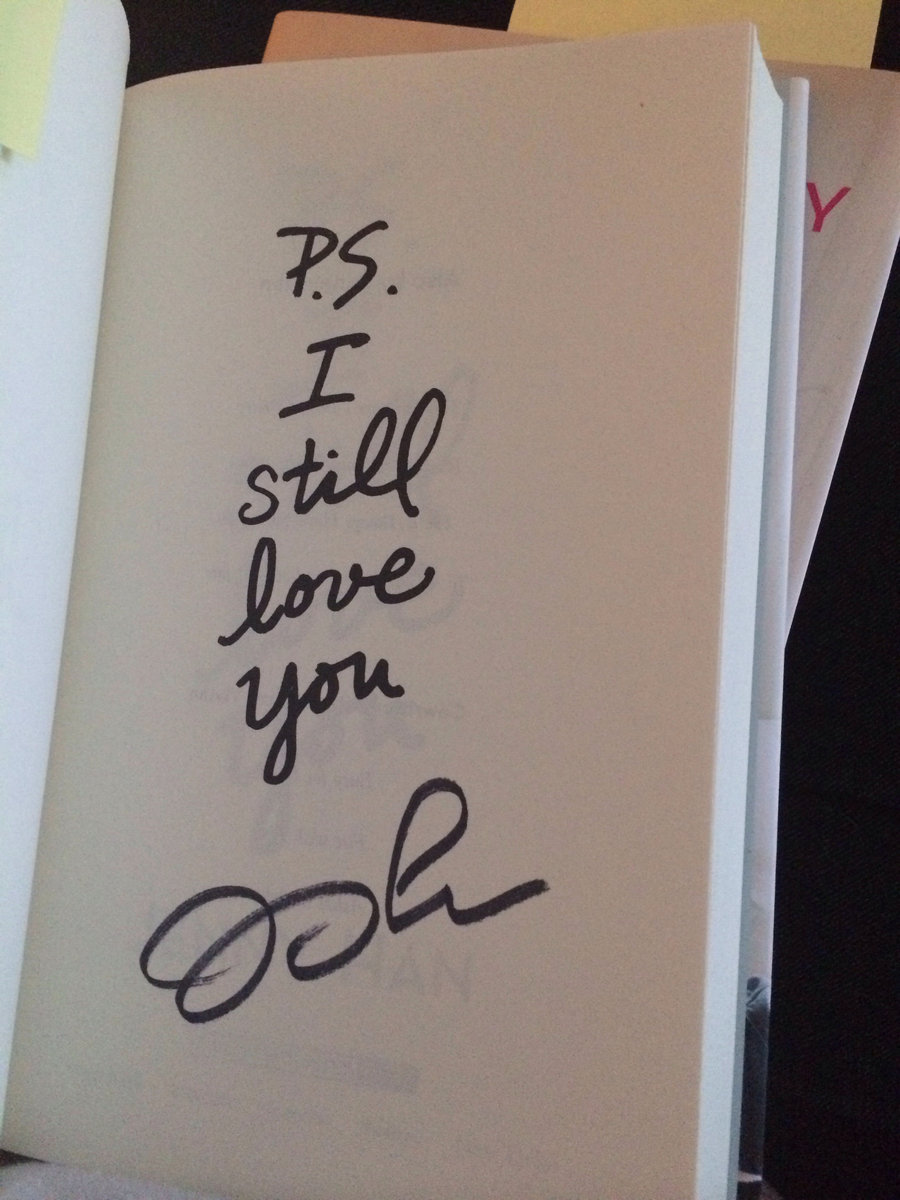 P.S.
I
still
love
you
Y